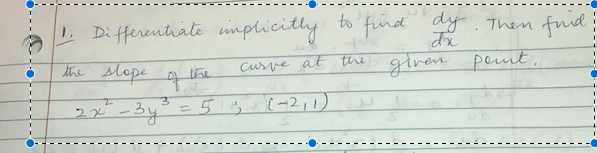 1. Differentiate implicitly to find dy/dx. Then find
the slope of the curve at the given point.
2x² - 3y³ = 5 ; (-2,1)